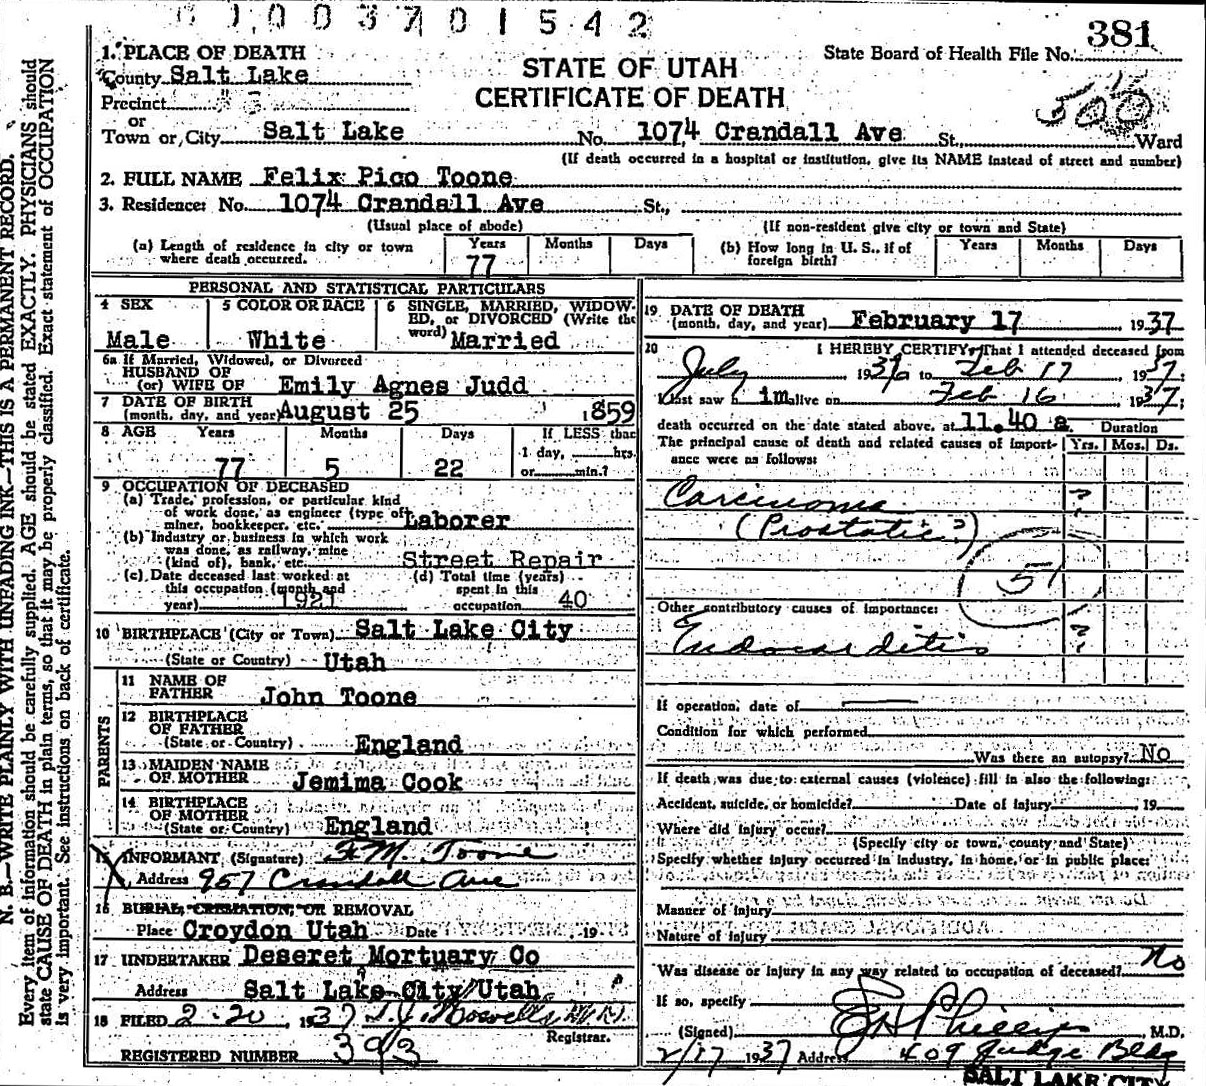 61003701542
381
1. PLACE OF DEATH
State Board of Health File No.
County Salt Lake
STATE OF UTAH
Precinct
CERTIFICATE OF DEATH
or
Town or City Salt Lake No. 1074 Crandall Ave St., Ward
(If death occurred in a hospital or institution, give its NAME instead of street and number)
2. FULL NAME Felix Pico Toone
3. Residence: No. 1074 Crandall Ave St.,
(Usual place of abode) (If non-resident give city or town and State)
(a) Length of residence in city or town where death occurred. Years 77 Months Days
(b) How long in U. S., if of foreign birth? Years Months Days
PERSONAL AND STATISTICAL PARTICULARS
4 SEX Male
5 COLOR OR RACE White
6 SINGLE, MARRIED, WIDOWED, or DIVORCED (Write the word) Married
6a If Married, Widowed, or Divorced
HUSBAND OF
(or) WIFE OF Emily Agnes Judd
7 DATE OF BIRTH
(month, day, and year) August 25 1859
8 AGE Years Months Days If LESS than
1 day, hrs.
77 5 22 or min.?
9 OCCUPATION OF DECEASED
(a) Trade, profession, or particular kind
of work done, as engineer (type of)
miner, bookkeeper, etc. Laborer
(b) Industry or business in which work
was done, as railway, mine
(kind of), bank, etc. Street Repair
(c) Date deceased last worked at
this occupation (month and
year) 1921
(d) Total time (years)
spent in this
occupation 40
10 BIRTHPLACE (City or Town) Salt Lake City
(State or Country) Utah
PARENTS
11 NAME OF
FATHER John Toone
12 BIRTHPLACE
OF FATHER
(State or Country) England
13 MAIDEN NAME
OF MOTHER Jemima Cook
14 BIRTHPLACE
OF MOTHER
(State or Country) England
15 INFORMANT (Signature) F. M. Toone
Address 957 Crandall Ave
16 BURIAL, CREMATION, OR REMOVAL
Place Croydon Utah Date , 19
17 UNDERTAKER Deseret Mortuary Co
Address Salt Lake City Utah
18 FILED 2-20, 1937
Registrar.
REGISTERED NUMBER 393
19 DATE OF DEATH
(month, day, and year) February 17 1937
20 I HEREBY CERTIFY, That I attended deceased from
July 1936 to Feb 17, 1937;
I last saw h im alive on Feb 16, 1937;
death occurred on the date stated above, at 11.40 a. Duration
The principal cause of death and related causes of importance were as follows: Yrs. Mos. Ds.
Carcinoma ?
(Prostatic?)
51
Other contributory causes of importance:
Endocarditis ?
If operation, date of
Condition for which performed
Was there an autopsy? No
If death was due to external causes (violence) fill in also the following:
Accident, suicide, or homicide? Date of injury , 19
Where did injury occur?
(Specify city or town, county and State)
Specify whether injury occurred in industry, in home, or in public place:
Manner of injury
Nature of injury
Was disease or injury in any way related to occupation of deceased? No
If so, specify
(Signed) E H Phillips M.D.
2/17 1937 Address 409 Judge Bldg
SALT LAKE CITY
N. B.—WRITE PLAINLY WITH UNFADING INK—THIS IS A PERMANENT RECORD.
Every item of information should be carefully supplied. AGE should be stated EXACTLY. PHYSICIANS should
state CAUSE OF DEATH in plain terms, so that it may be properly classified. Exact statement of OCCUPATION
is very important. See instructions on back of certificate.